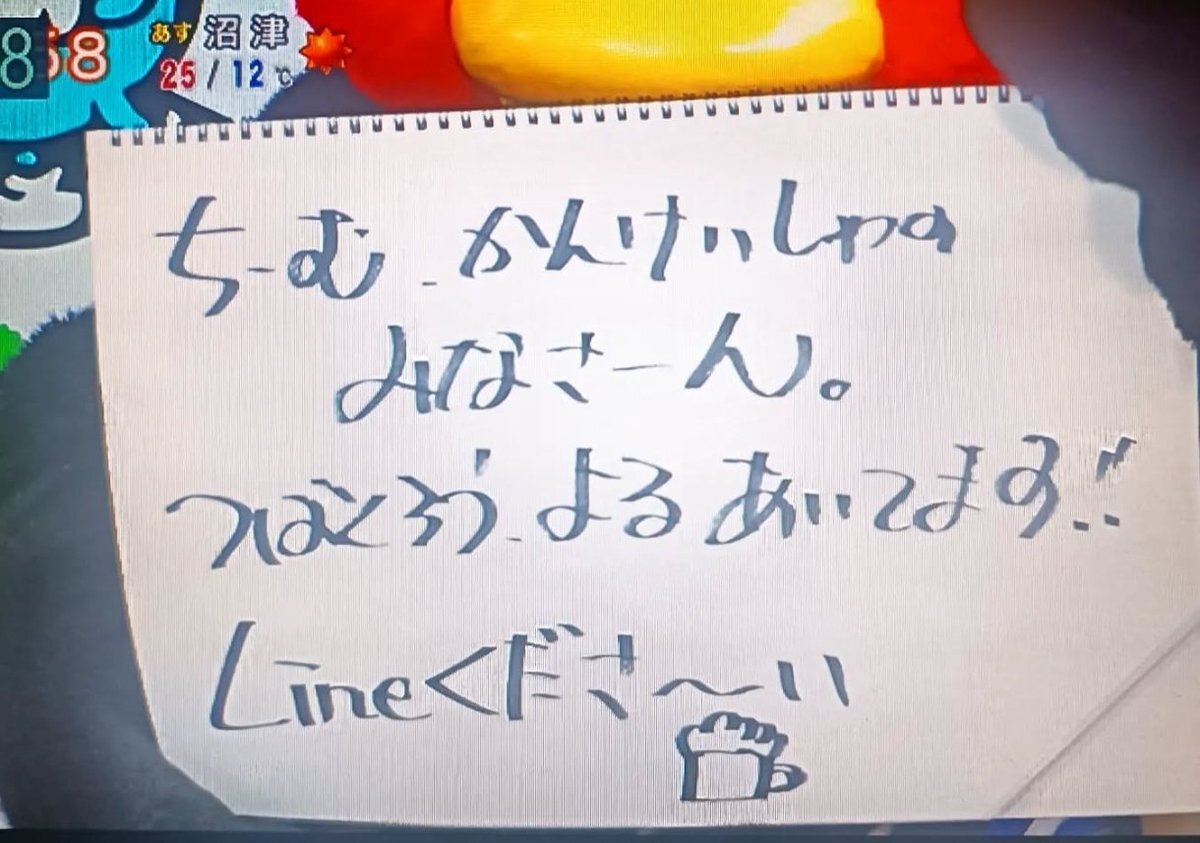 8 58 あす 沼津
25/12℃
ちーむ かんけいしゃの
みなさーん。
つばくろう よる あいてます!!
Lineくださ〜い